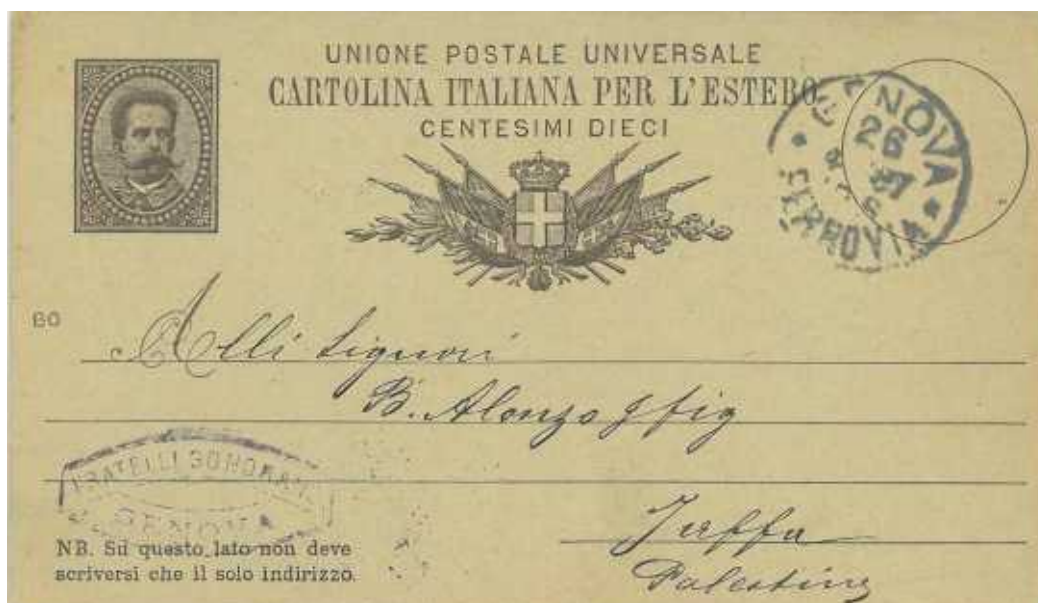 UNIONE POSTALE UNIVERSALE
CARTOLINA ITALIANA PER L'ESTERO
CENTESIMI DIECI
GENOVA
26
87
FERROVIA
BO
Alli Signori
B. Alonzo & fig
FRATELLI
GENOVA
Jaffa
Palestina
NB. Su questo lato non deve
scriversi che il solo indirizzo.